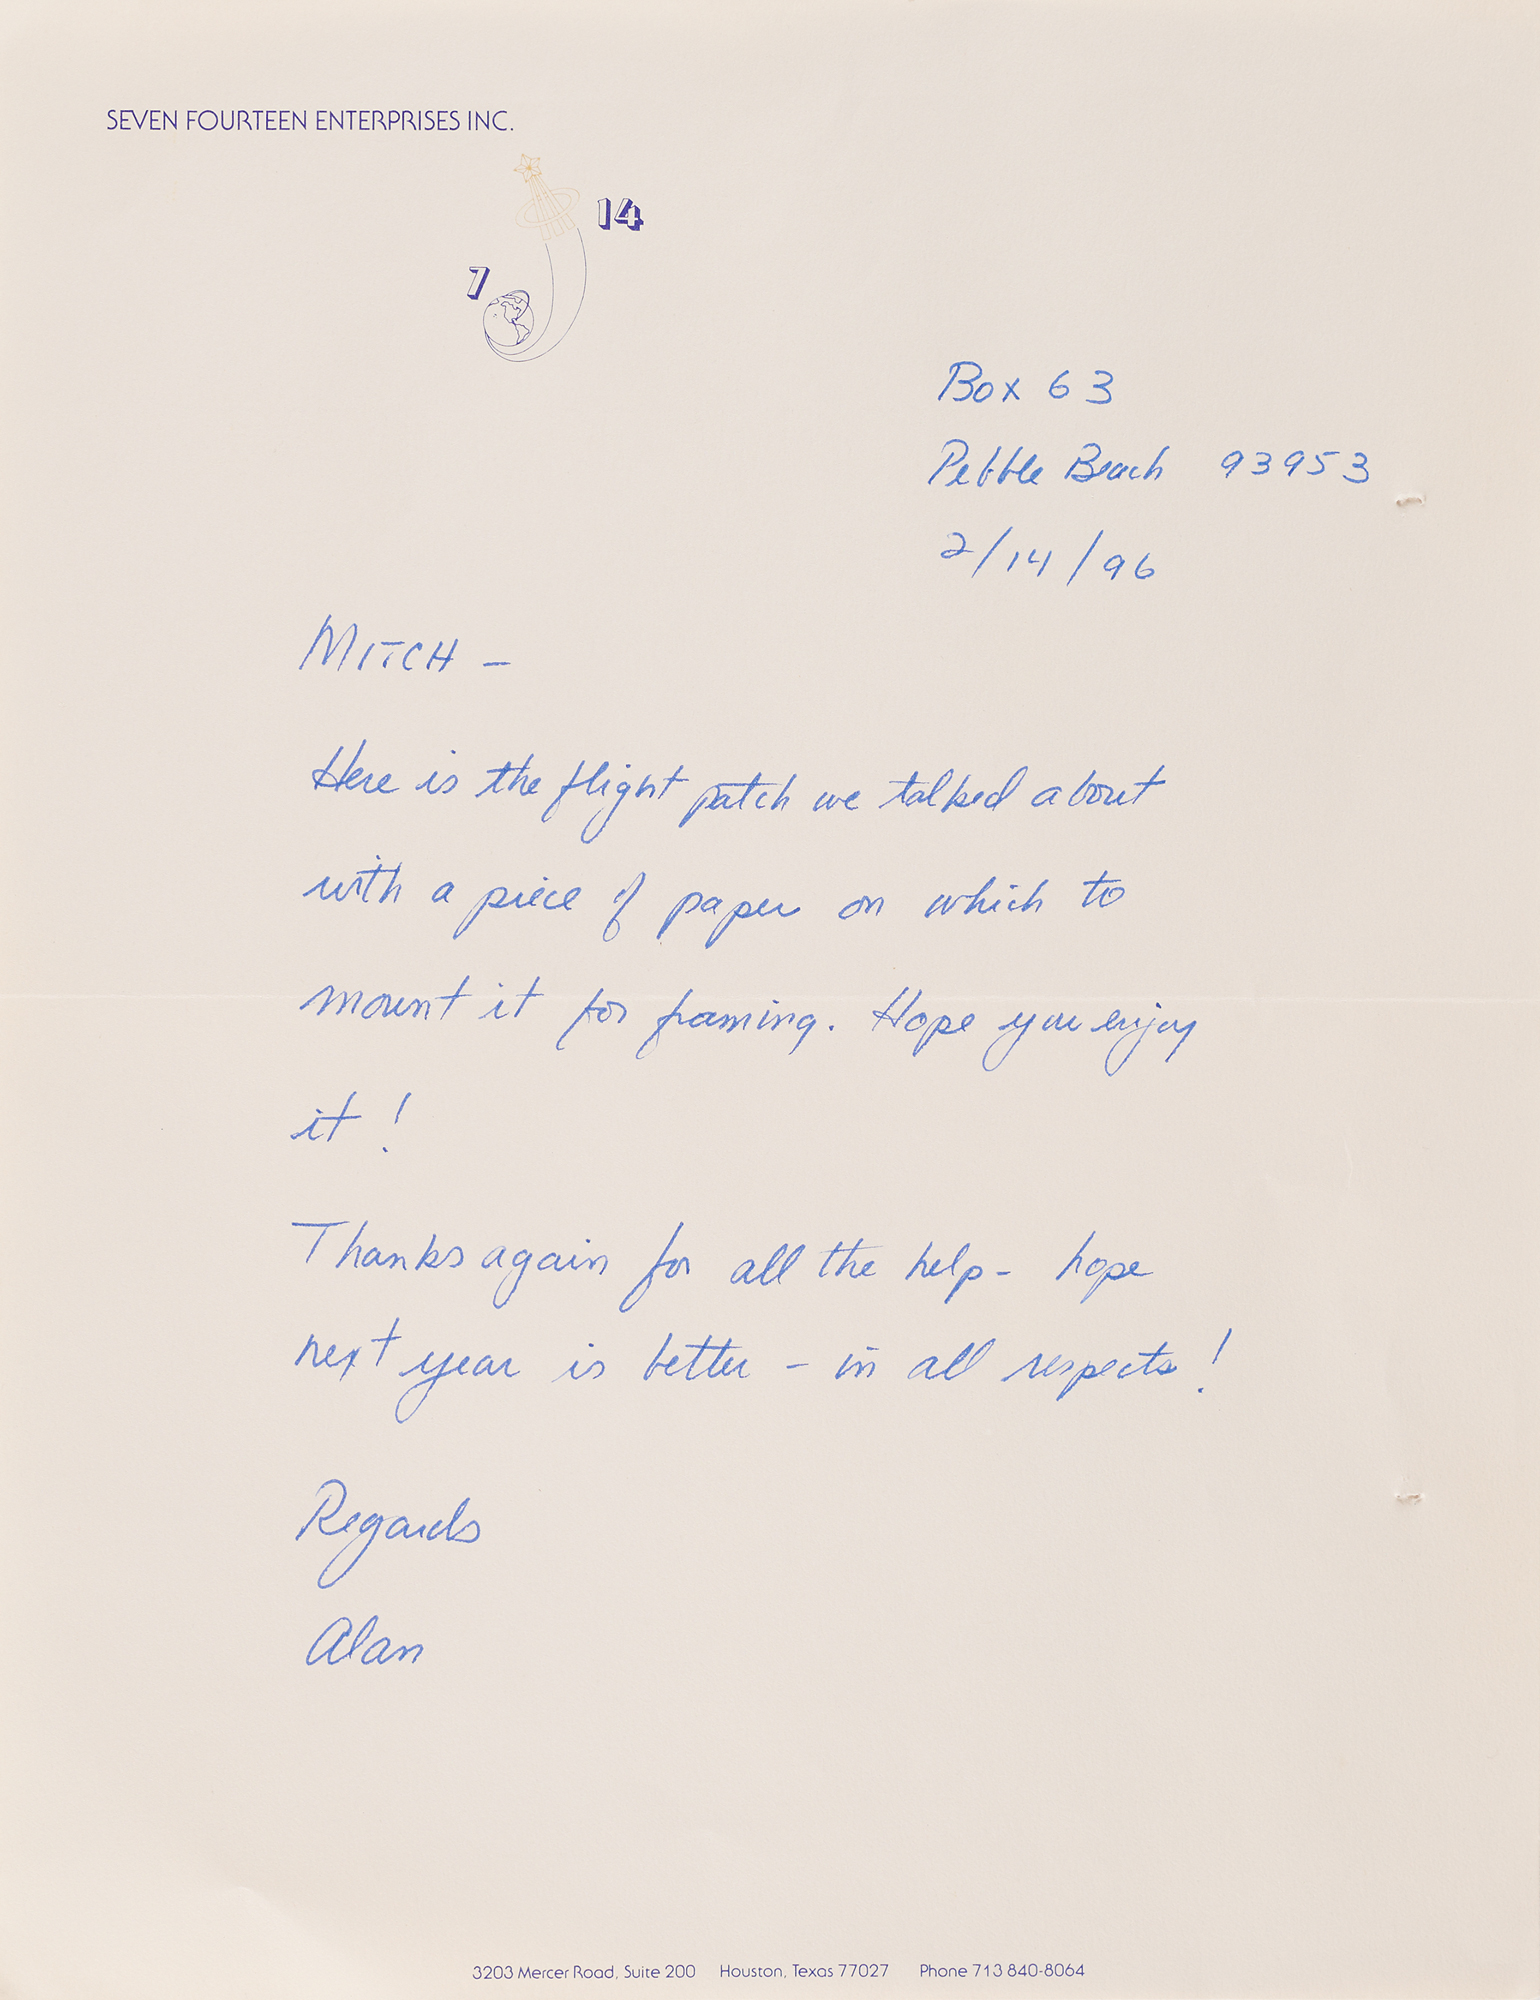 SEVEN FOURTEEN ENTERPRISES INC.
14
7
Box 63
Pebble Beach 93953
2/14/96
MITCH -
Here is the flight patch we talked about
with a piece of paper on which to
mount it for framing. Hope you enjoy
it!
Thanks again for all the help - hope
next year is better - in all respects!
Regards
Alan
3203 Mercer Road, Suite 200 Houston, Texas 77027 Phone 713 840-8064